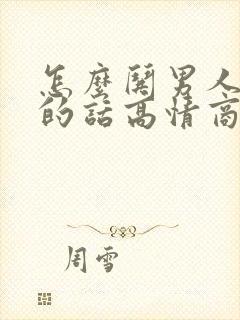 怎麼関男人
的話高情商
周雪